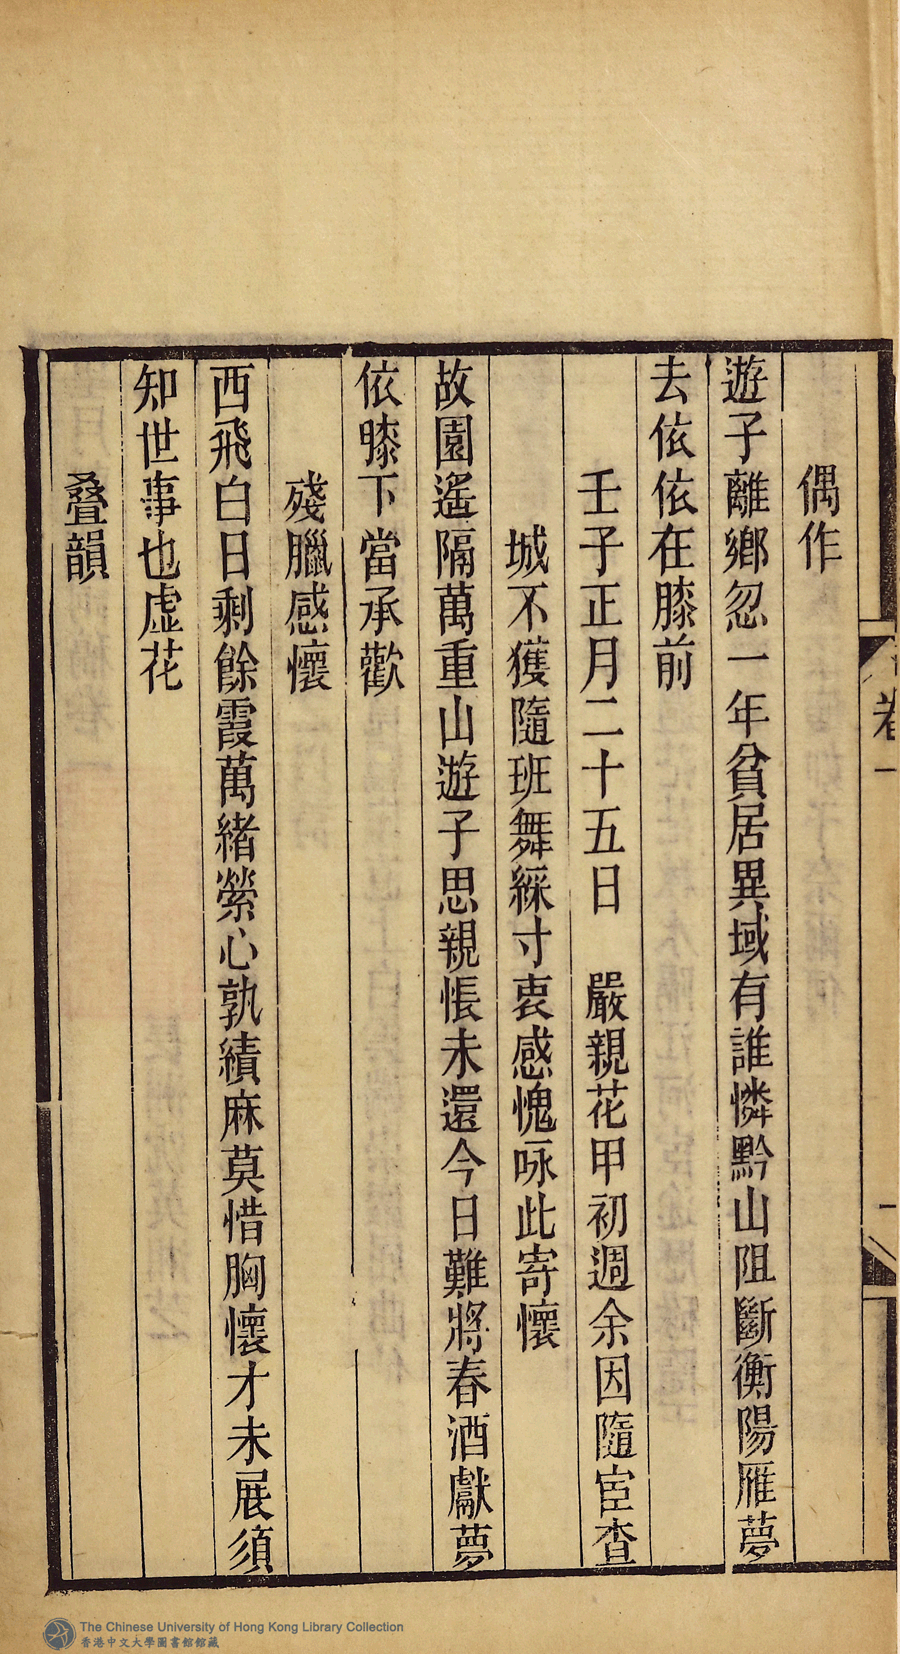 偶作
遊子離鄉忽一年貧居異域有誰憐黔山阻斷衡陽雁夢
去依依在膝前
壬子正月二十五日　嚴親花甲初週余因隨宦查
城不獲隨班舞綵寸衷感愧咏此寄懷
故園遙隔萬重山遊子思親悵未還今日難將春酒獻夢
依膝下當承歡
殘臘感懷
西飛白日剩餘霞萬緒縈心孰績麻莫惜胸懷才未展須
知世事也虛花
叠韻
卷一
The Chinese University of Hong Kong Library Collection
香港中文大學圖書館館藏